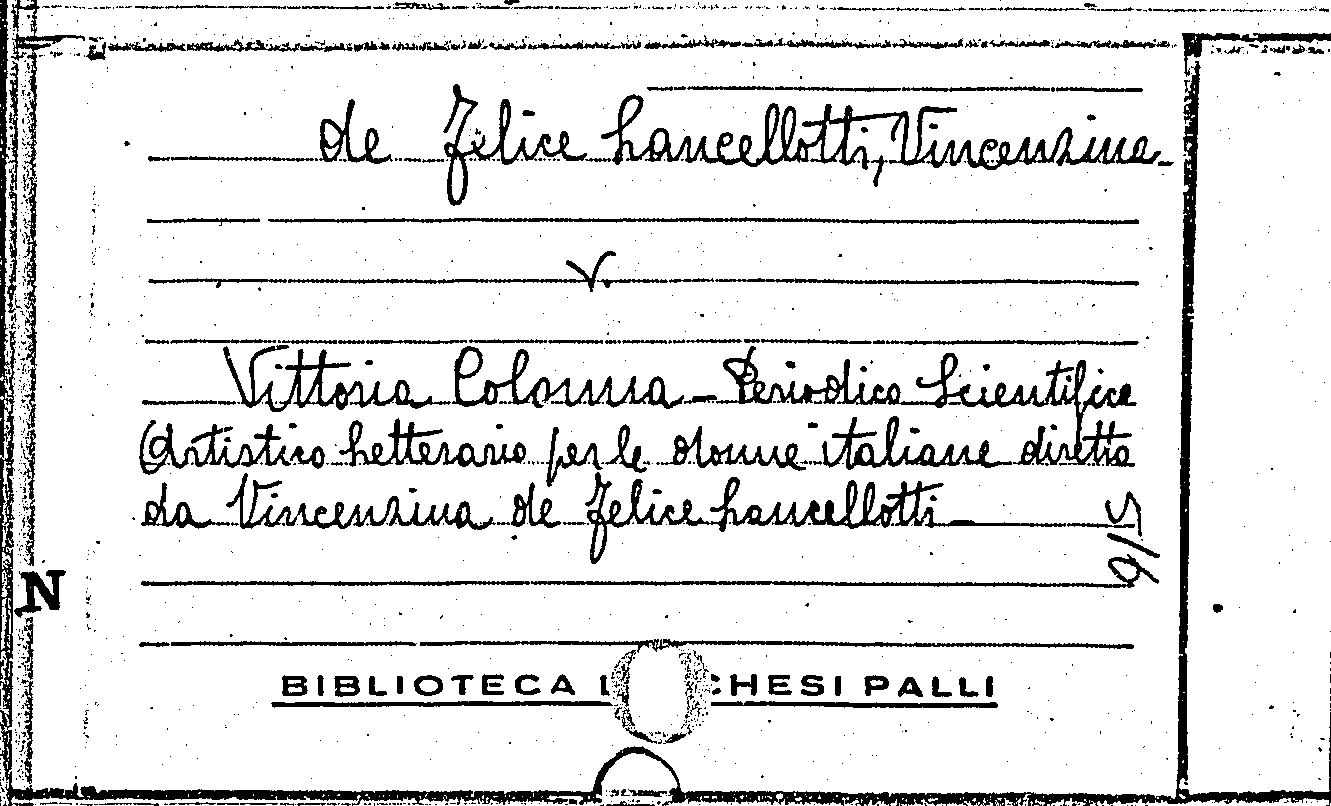 de Felice Lancellotti, Vincenzina-
V.
Vittoria Colonna - Periodico Scientifico
Artistico Letterario per le donne italiane diretto
da Vincenzina de Felice Lancellotti -
N
BIBLIOTECA L CHESI PALLI